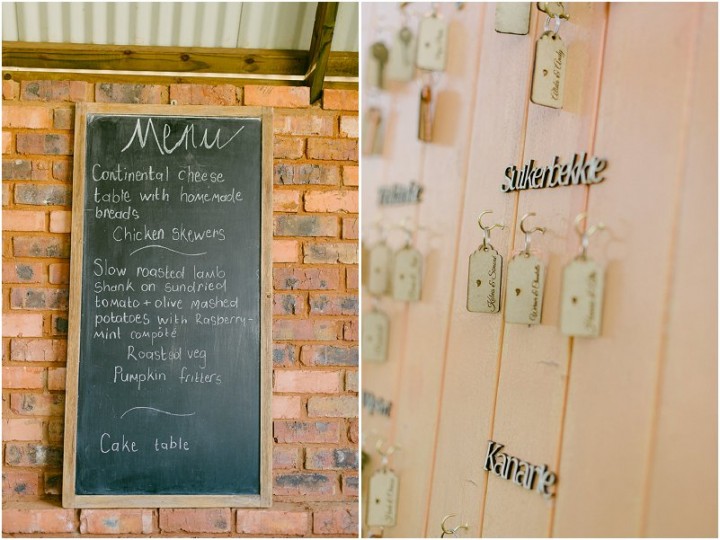 Menu
Continental cheese
table with homemade
breads
Chicken skewers
Slow roasted lamb
shank on sundried
tomato + olive mashed
potatoes with Rasberry-
mint compôte
Roasted veg
Pumpkin fritters
Cake table
Suikerbekkie
Kanarie